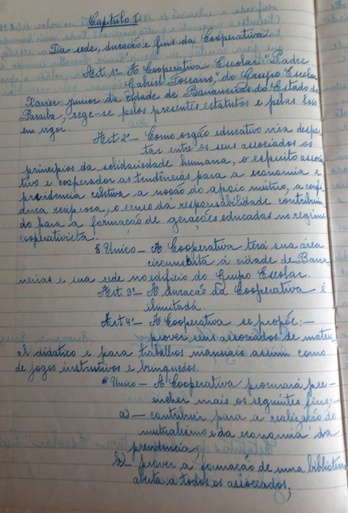 Capitulo I
Da sede, duração e fins da Cooperativa
Art. 1º - A Cooperativa Escolar "Padre
Gabriel Toscano" do Grupo Escolar
Xavier Junior da cidade de Bananeiras do Estado da
Paraiba, rege-se pelos presentes estatutos e pelas leis
em vigor.
Art. 2º - Como orgão educativo visa desper-
tar entre os seus associados os
principios da solidariedade humana, o espirito associa-
tivo e cooperador as tendências para a economia e
previdencia coletiva a noção do apoio mutuo, a confi-
dença reciproca, o senso da responsabilidade contribuin-
do para a formação de gerações educadas no regime
cooperativista.
§ Unico - A Cooperativa terá sua área
circunscrita á cidade de Bana-
neiras e sua sede no edificio do Grupo Escolar.
Art. 3º - A duração da Cooperativa é
ilimitada.
Art. 4º - A Cooperativa se propõe: -
prover seus associados de materi-
al didatico e para trabalhos manuais assim como
de jogos instrutivos e brinquedos.
§ Unico - A Cooperativa procurará pre-
encher mais os seguintes fins:
a) - contribuir para a realização do
mutualismo da economia da
previdencia;
b) prover a formação de uma biblioteca
aberta a todos os associados;